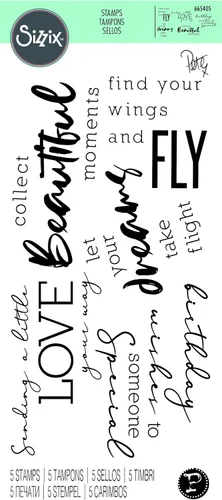 Sizzix
STAMPS
TAMPONS
SELLOS
665405
find your
wings
and
FLY
collect
Beautiful
moments
let
your
dreams
take
flight
Sending a little
LOVE
your way
birthday
wishes to
someone
Special
5 STAMPS | 5 TAMPONS | 5 SELLOS | 5 TIMBRI
5 ПЕЧАТИ | 5 STEMPEL | 5 CARIMBOS
P